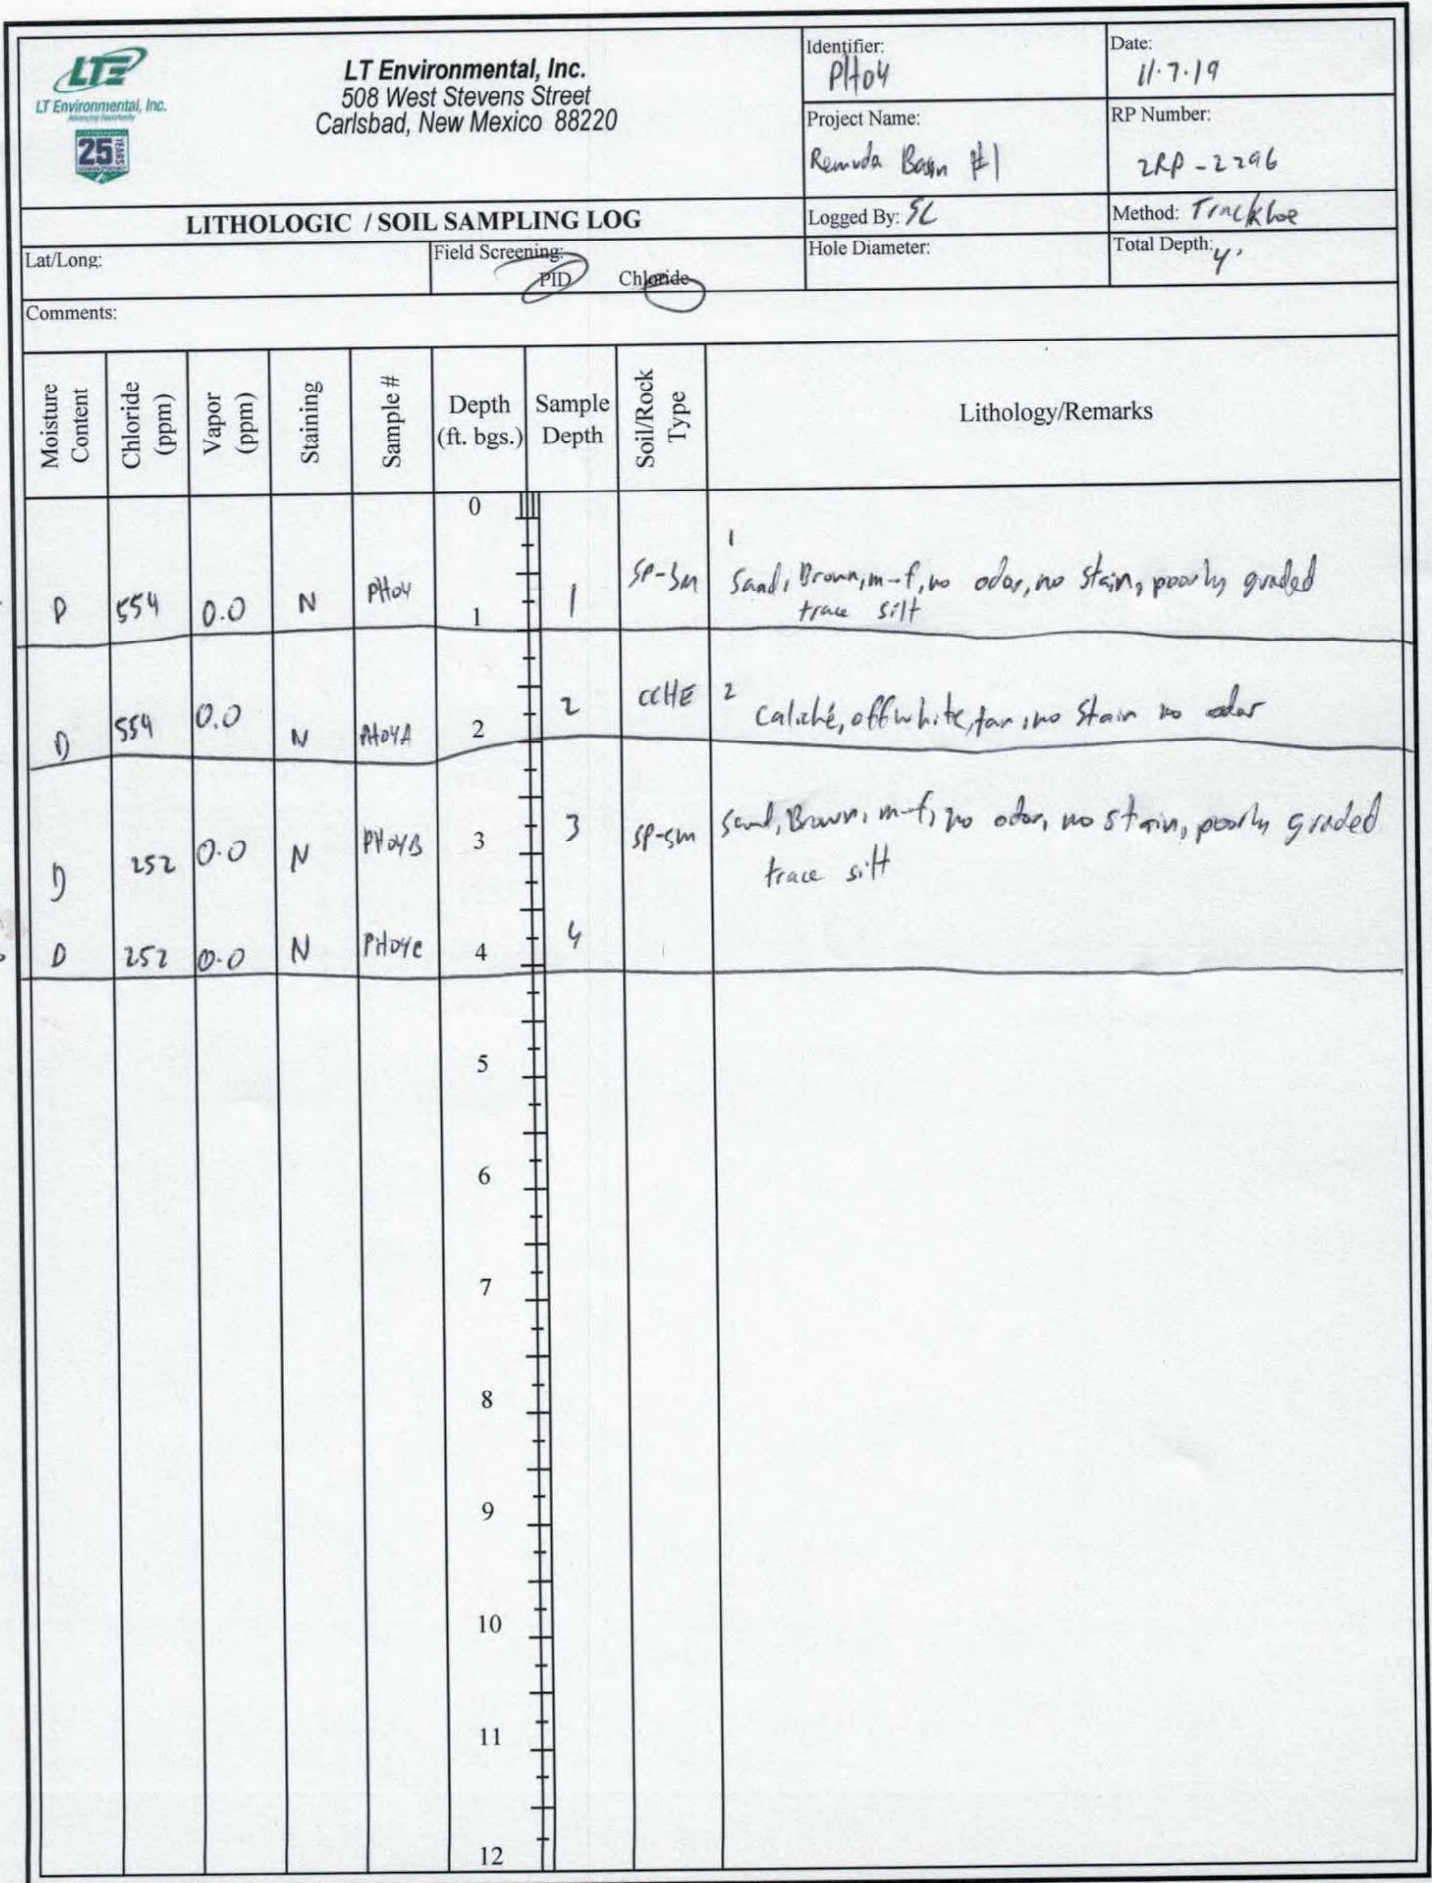 LTE
LT Environmental, Inc.
Advancing Opportunity
25 YEARS
LT Environmental, Inc.
508 West Stevens Street
Carlsbad, New Mexico 88220
Identifier:
PH04
Date:
11.7.19
Project Name:
Remuda Basin #1
RP Number:
2RP-2296
LITHOLOGIC / SOIL SAMPLING LOG
Logged By: SL
Method: Trackhoe
Lat/Long:
Field Screening:
PID Chloride
Hole Diameter:
Total Depth: 4'
Comments:
Moisture Content
Chloride (ppm)
Vapor (ppm)
Staining
Sample #
Depth (ft. bgs.)
Sample Depth
Soil/Rock Type
Lithology/Remarks
0
1
D 554 0.0 N PH04 1 1 SP-SM Sand, Brown, m-f, no odor, no stain, poorly graded
trace silt
D 554 0.0 N PH04A 2 2 CCHE 2 Caliche, offwhite, tan, no stain no odor
D 252 0.0 N PH04B 3 3 SP-SM Sand, Brown, m-f, no odor, no stain, poorly graded
trace silt
D 252 0.0 N PH04C 4 4
5
6
7
8
9
10
11
12